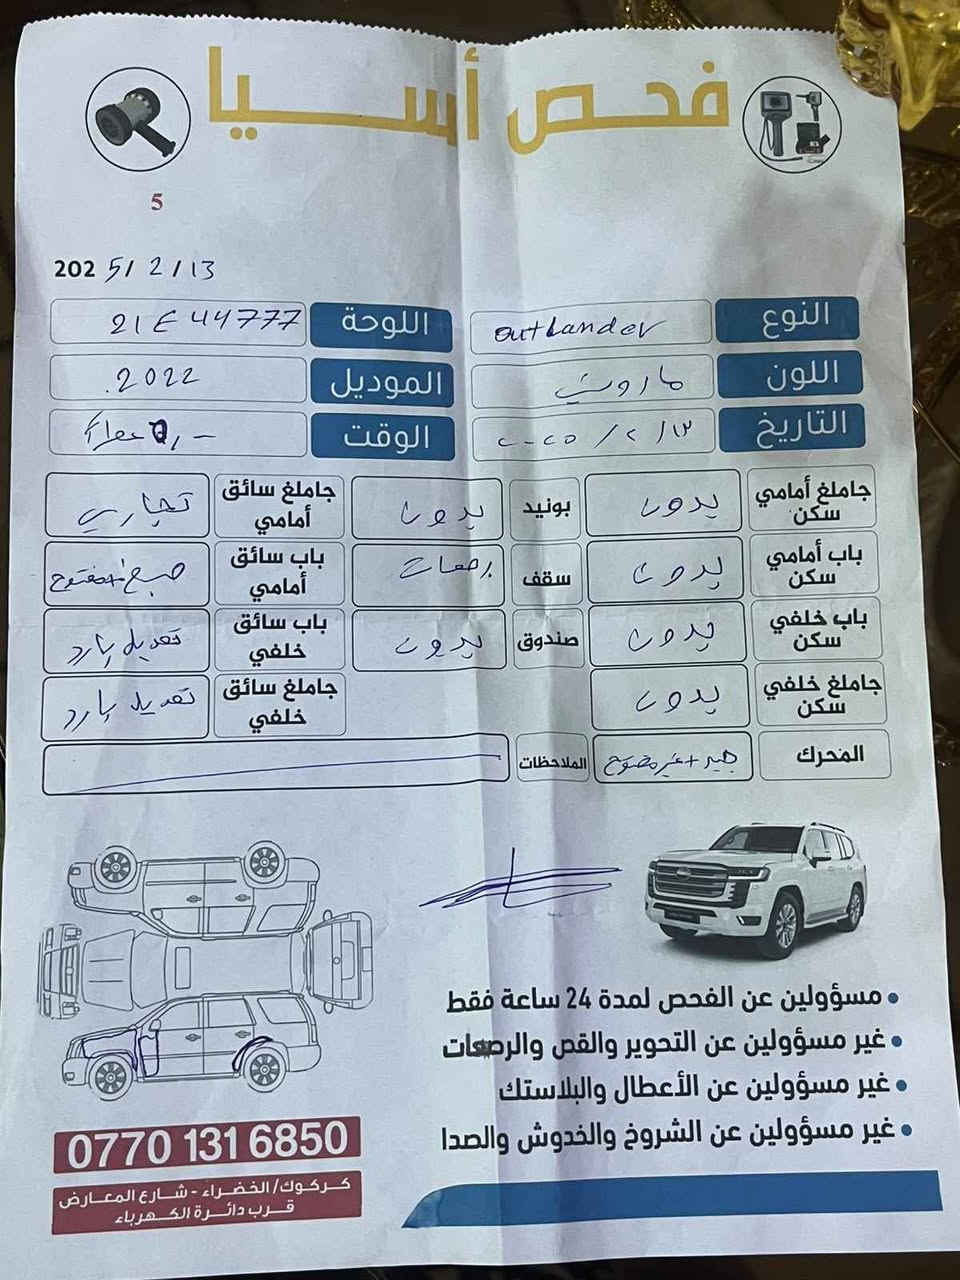 فحص أسيا
5
2025/2/13
النوع outlander اللوحة 21E44777
اللون ماروني الموديل 2022
التاريخ ٢٠٢٥/٢/١٣ الوقت
جاملغ أمامي سكن بدون بونيد بدون جاملغ سائق أمامي تجاري
باب أمامي سكن بدون سقف رصعات باب سائق أمامي صبغ + مفتوح
باب خلفي سكن بدون صندوق بدون باب سائق خلفي تعديل بارد
جاملغ خلفي سكن بدون جاملغ سائق خلفي تعديل بارد
المحرك جيد + غير مفتوح الملاحظات
• مسؤولين عن الفحص لمدة 24 ساعة فقط
• غير مسؤولين عن التحوير والقص والرصعات
• غير مسؤولين عن الأعطال والبلاستك
• غير مسؤولين عن الشروخ والخدوش والصدا
0770 131 6850
كركوك/ الخضراء - شارع المعارض
قرب دائرة الكهرباء